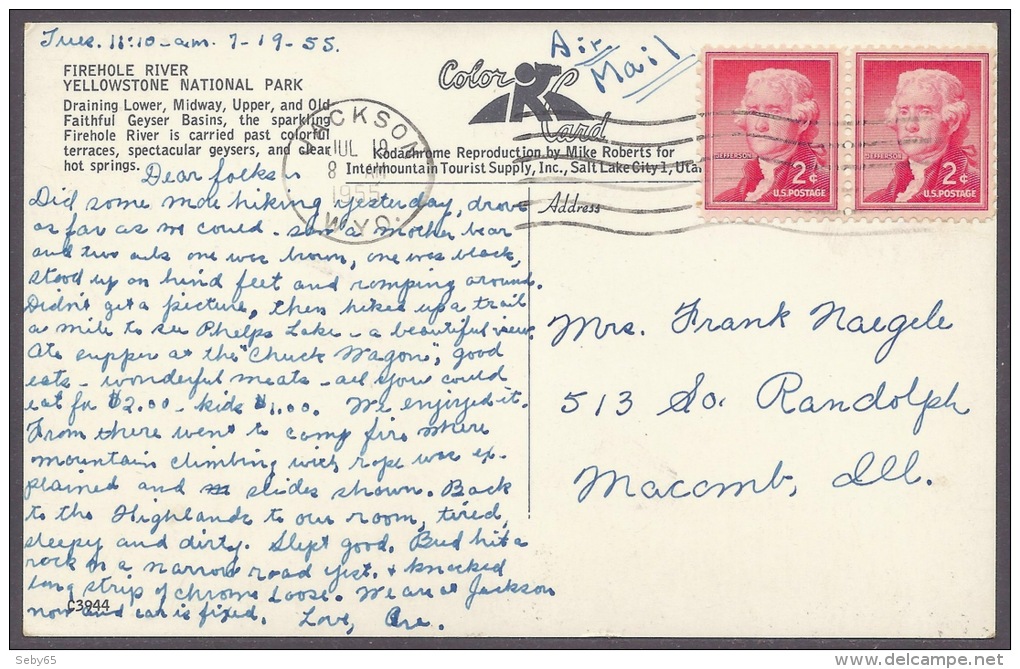 Tues. 11:10 - am. 7-19-55.
Air
Mail
FIREHOLE RIVER
YELLOWSTONE NATIONAL PARK
Draining Lower, Midway, Upper, and Old
Faithful Geyser Basins, the sparkling
Firehole River is carried past colorful
terraces, spectacular geysers, and clear
hot springs.
Color
K
Card
Kodachrome Reproduction by Mike Roberts for
Intermountain Tourist Supply, Inc., Salt Lake City 1, Utah
JACKSON
JUL 19
8 AM
1955
WYO.
JEFFERSON
2¢
U.S. POSTAGE
JEFFERSON
2¢
U.S. POSTAGE
Address
Dear folks -
Did some more hiking yesterday, drove
as far as we could - saw a mother bear
and two cubs one was brown, one was black,
stood up on hind feet and romping around.
Didn't get a picture, then hiked up a trail
a mile to see Phelps Lake - a beautiful view.
Ate supper at the "Chuck Wagon", good
eats - wonderful meats - all you could
eat for $2.00 - kids $1.00. We enjoyed it.
From there went to camp fire where
mountain climbing with rope was ex-
plained and slides shown. Back
to the Highlands to our room, tired,
sleepy and dirty. Slept good. Bud hit a
rock on a narrow road yest. & knocked
long strip of chrome loose. We are at Jackson
now and car is fixed. Love,
C3944
Mrs. Frank Naegele
513 So. Randolph
Macomb, Ill.
Seby65
delcampe.net